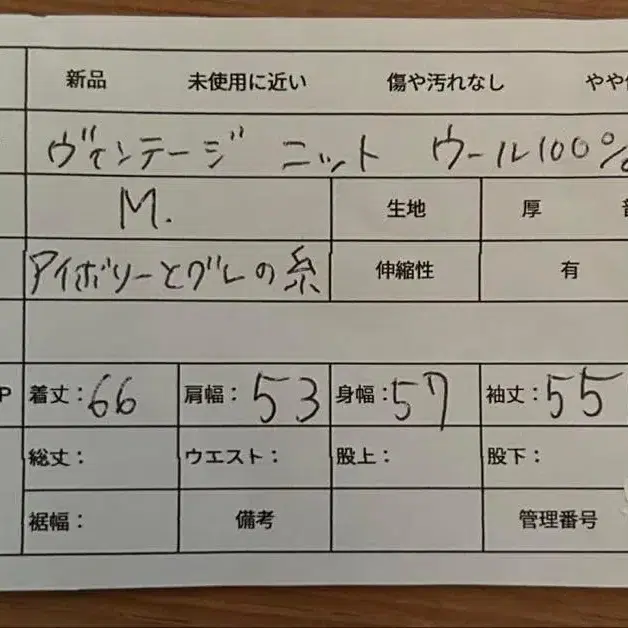 新品 未使用に近い 傷や汚れなし やや
ヴィンテージ ニット ウール100%
M. 生地 厚
アイボリーとグレの糸 伸縮性 有
P 着丈：66 肩幅：53 身幅：57 袖丈：55
総丈： ウエスト： 股上： 股下：
裾幅： 備考 管理番号